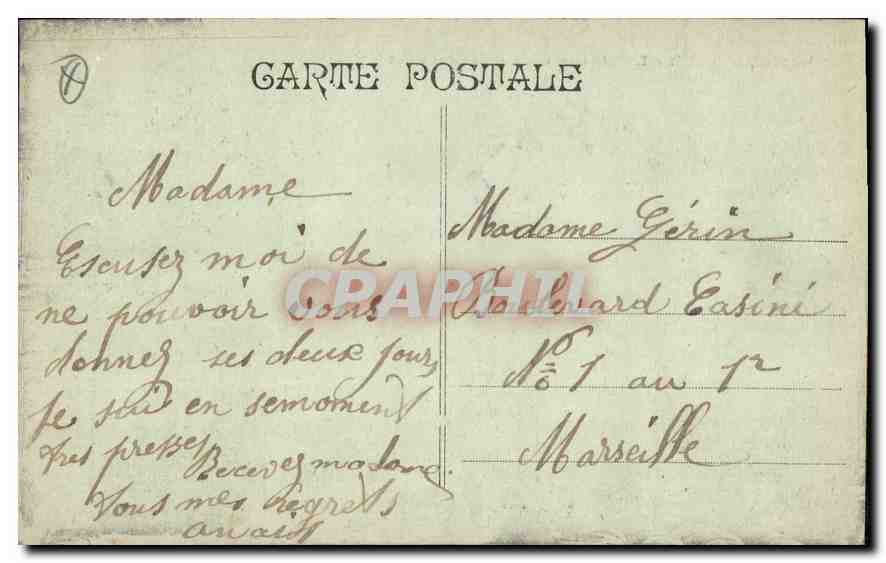 CARTE POSTALE
Madame
Escusez moi de
ne pouvoir vous
donnez ses deux jours
je sui en semoment
tres presses
Recevez madame
tous mes regrets
anais
Madame Gérin
Boulevard Casini
No 1 au 1r
Marseille
CPAPHIL